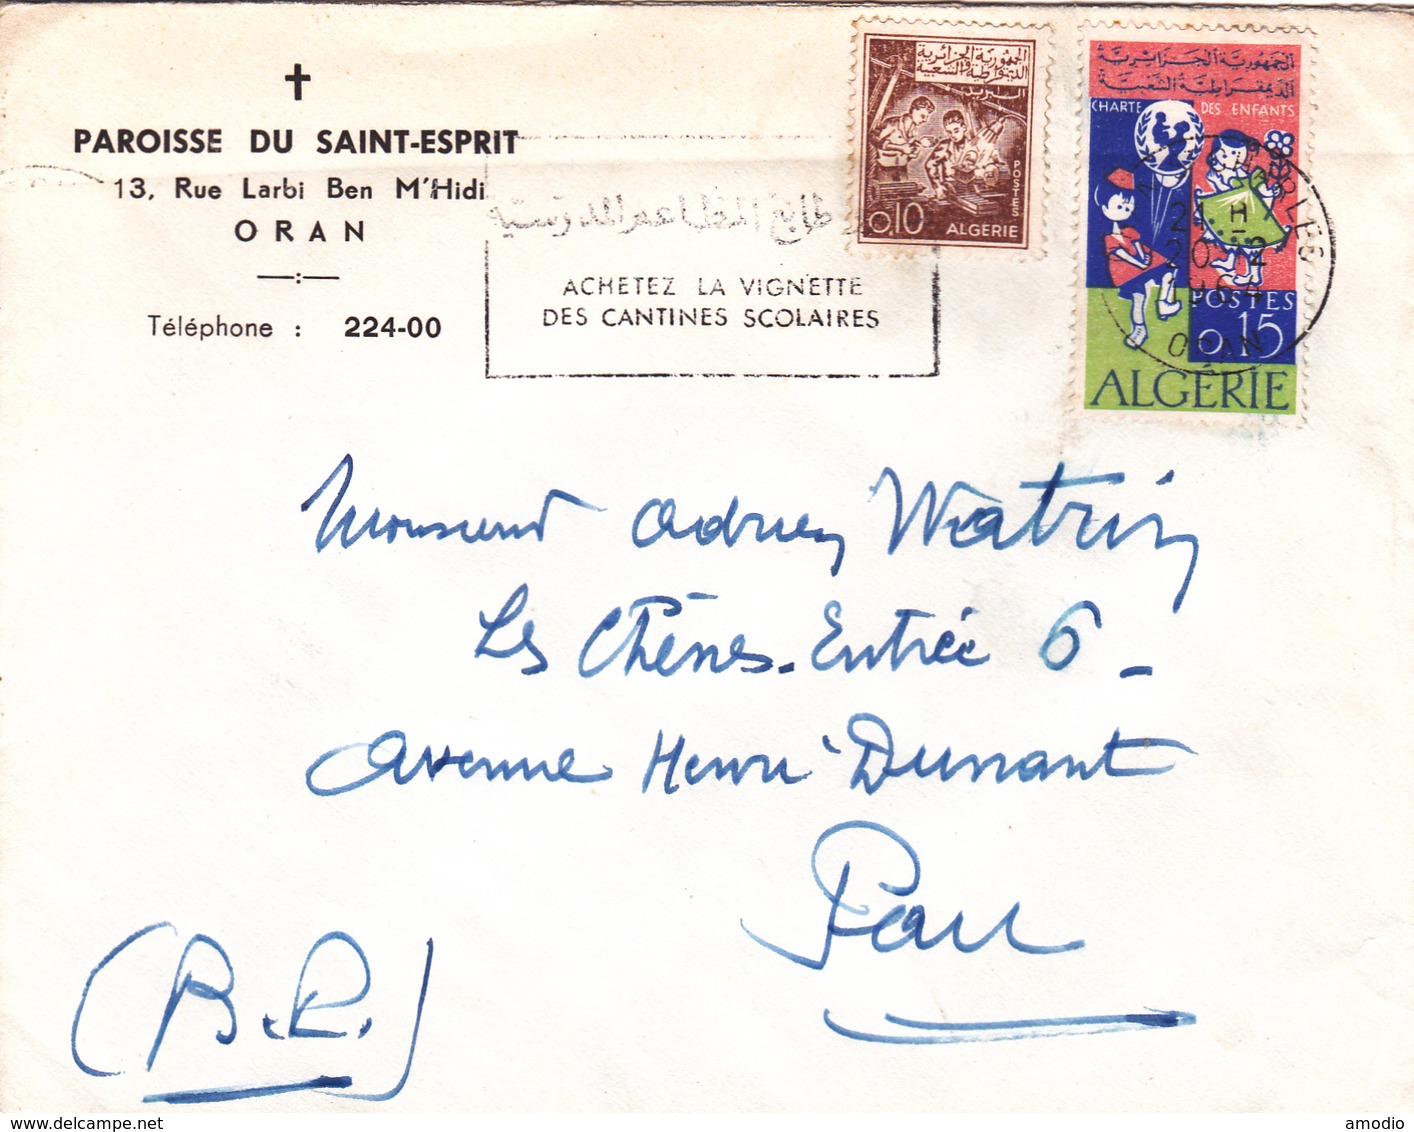 PAROISSE DU SAINT-ESPRIT
13, Rue Larbi Ben M'Hidi
ORAN
Téléphone : 224-00
طابع المطاعم المدرسية
ACHETEZ LA VIGNETTE
DES CANTINES SCOLAIRES
الجمهورية الجزائرية
الديمقراطية الشعبية
البريد
POSTES
0,10 ALGERIE
الجمهورية الجزائرية
الديمقراطية الشعبية
CHARTE DES ENFANTS
H
20-12
1964
ORAN
POSTES
0,15
ALGÉRIE
Monsieur Adrien Watrin
Les Chênes-Entrée 6-
Avenue Henri-Dunant
Pau
(B.P.)
www.delcampe.net
amodio